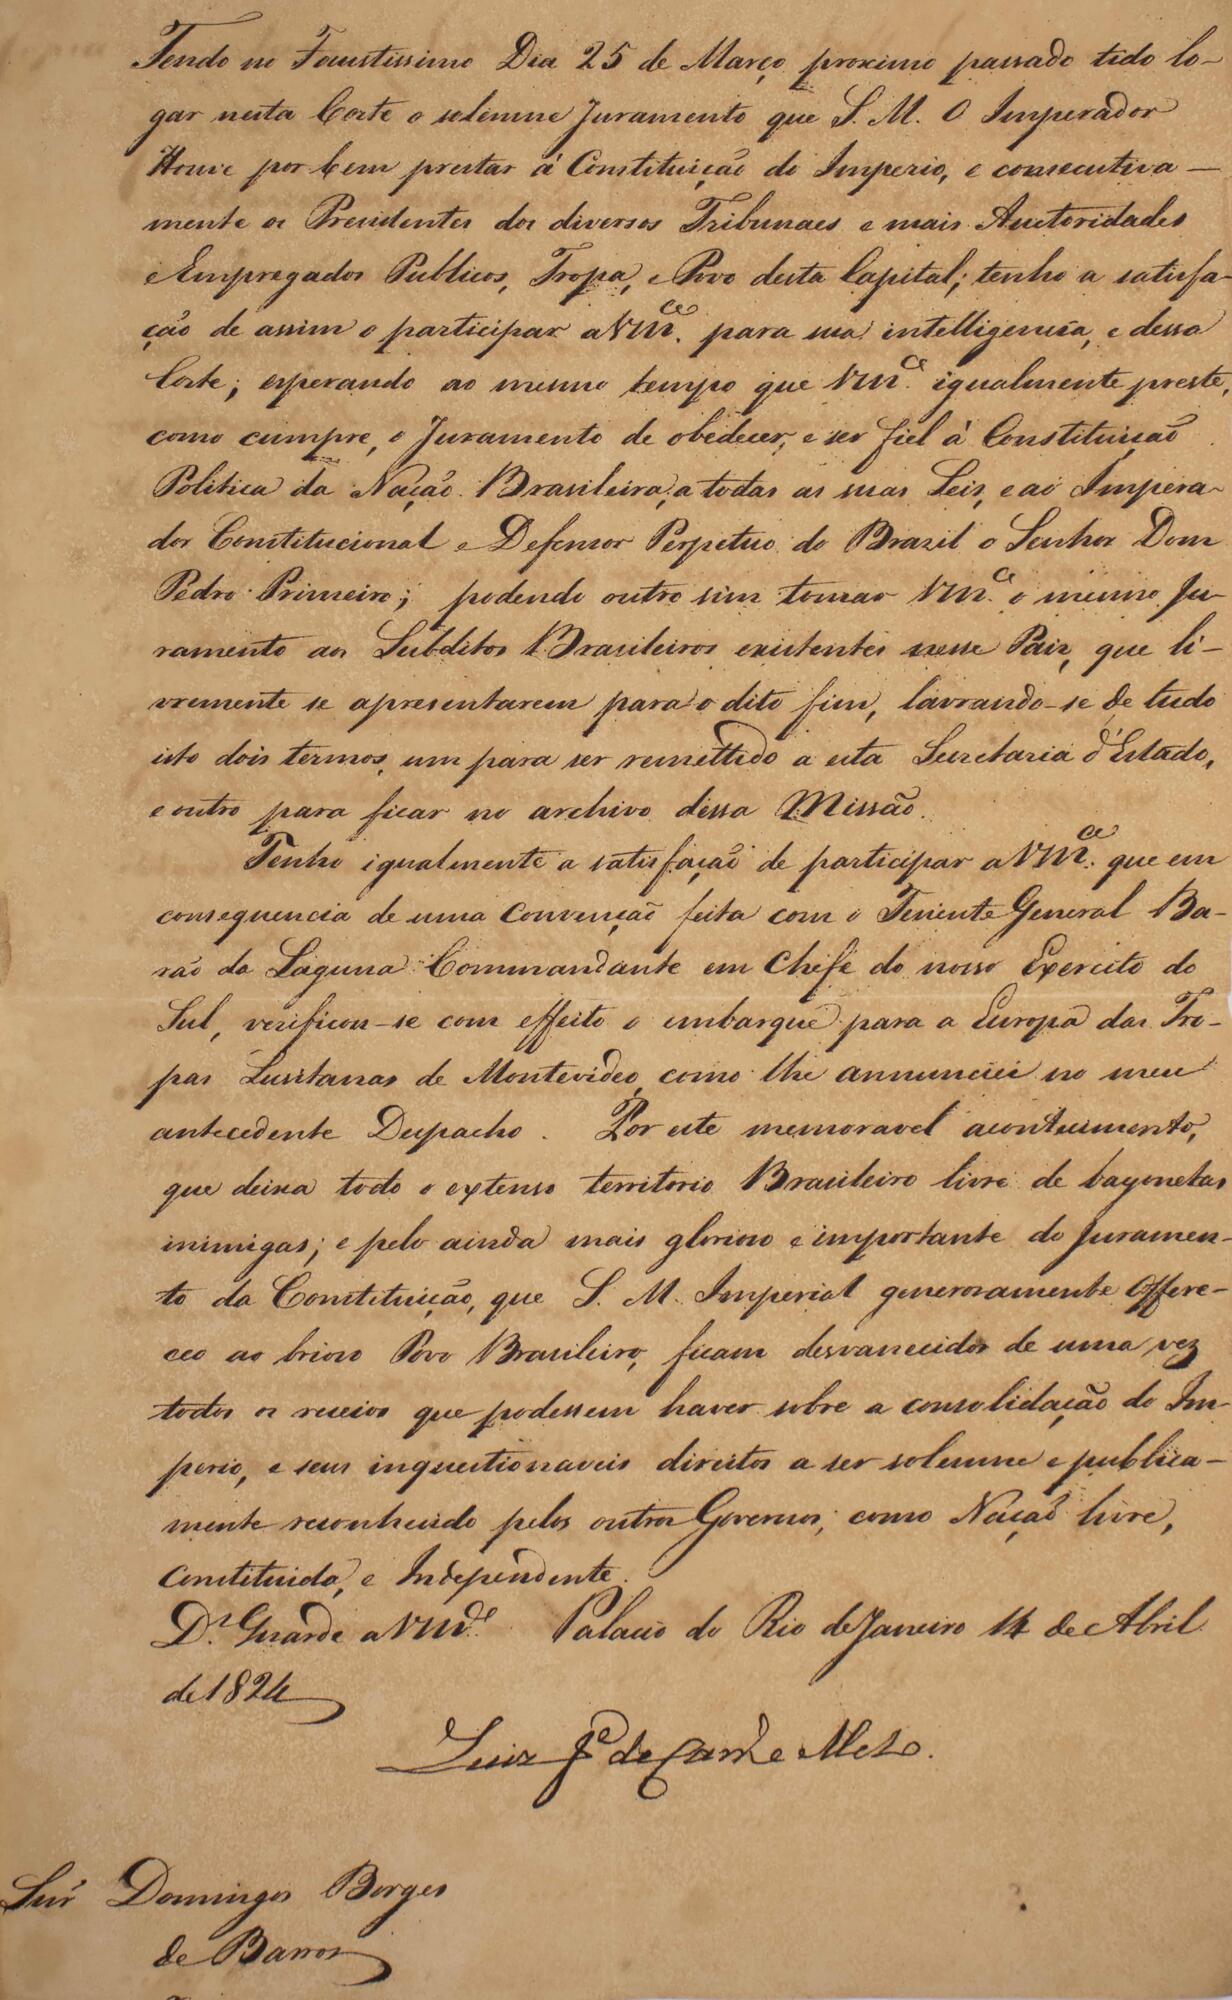 Tendo no Faustissimo Dia 25 de Março proximo passado tido lo-
gar nesta Corte o solemne Juramento que S. M. O Imperador
Houve por bem prestar á Constituição do Imperio, e consecutiva-
mente os Presidentes dos diversos Tribunaes e mais Auctoridades
e Empregados Publicos, Tropa, e Povo desta Capital; tenho a satisfa-
ção de assim o participar a VM.ce para sua intelligencia, e dessa
Corte; esperando ao mesmo tempo que VM.ce igualmente preste,
como cumpre, o Juramento de obedecer, e ser fiel á Constituição
Politica da Nação Brasileira, a todas as suas Leis, e ao Impera-
dor Constitucional e Defensor Perpetuo do Brazil o Senhor Dom
Pedro Primeiro; podendo outro sim tomar VM.ce o mesmo Ju-
ramento aos Subditos Brasileiros existentes nesse Paiz, que li-
vremente se apresentarem para o dito fim, lavrando-se de tudo
isto dois termos, um para ser remettido a esta Secretaria d'Estado,
e outro para ficar no archivo dessa Missão.
Tenho igualmente a satisfação de participar a VM.ce que em
consequencia de uma Convenção feita com o Tenente General Ba-
rão da Laguna Commandante em Chefe do nosso Exercito do
Sul, verificou-se com effeito o embarque para a Europa das Tro-
pas Lusitanas de Montevideo, como lhe annunciei no meu
antecedente Despacho. Por este memoravel acontecimento,
que deixa todo o extenso territorio Brasileiro livre de bayonetas
inimigas; e pelo ainda mais glorioso e importante do Juramen-
to da Constituição, que S. M. Imperial generosamente Offere-
ceo ao brioso Povo Brasileiro, ficam desvanecidos de uma vez
todos os receios que podessem haver sobre a consolidação do Im-
perio, e seus inquestionaveis direitos a ser solemne e publica-
mente reconhecido pelos outros Governos, como Nação livre,
Constituida, e Independente.
D.s Guarde a VM.ce Palacio do Rio de Janeiro 14 de Abril
de 1824
Luiz J.e de Carv.o e Mello.
Snr Domingos Borges
de Barros